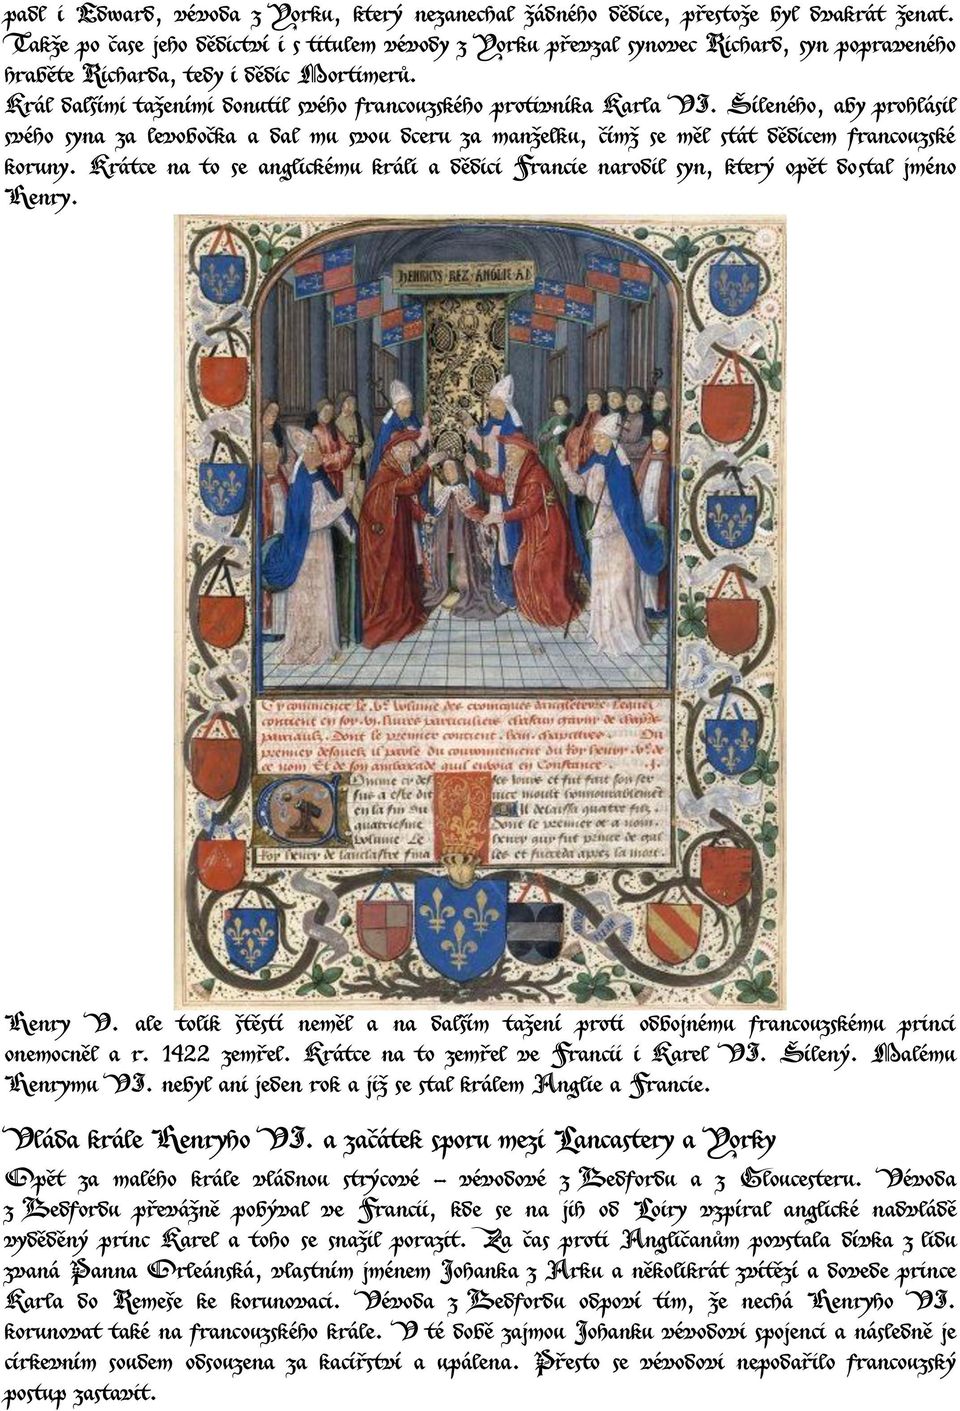 padl i Edward, vévoda z Yorku, který nezanechal žádného dědice, přestože byl dvakrát ženat.
Takže po čase jeho dědictví i s titulem vévody z Yorku převzal synovec Richard, syn popraveného
hraběte Richarda, tedy i dědic Mortimerů.
Král dalšími taženími donutil svého francouzského protivníka Karla VI. Šíleného, aby prohlásil
svého syna za levobočka a dal mu svou dceru za manželku, čímž se měl stát dědicem francouzské
koruny. Krátce na to se anglickému králi a dědici Francie narodil syn, který opět dostal jméno
Henry.
HENRICVS REX ANGLIE
Cy commence le .v.e volume des croniques dangleterre. Lequel
contient en soy .vi. liures particuliers
Dont le premier contient chapitres. Ou
premier desquelz il parle du couronnement du Roy henry .v.e de
ce nom Et de son ambaxade quil enuoia en Constance. .I.
Comme cy des
sus a este dit
en la fin du
quatriesme
volume Le
Roy henry de lancastre fina
ses jours et fut fait son ser
uice moult honnourablement
Il delaissa quatre filz,
Dont le premier ot a nom
henry qui fut prince de gal
les et succeda apres la mort
Henry V. ale tolik štěstí neměl a na dalším tažení proti odbojnému francouzskému princi
onemocněl a r. 1422 zemřel. Krátce na to zemřel ve Francii i Karel VI. Šílený. Malému
Henrymu VI. nebyl ani jeden rok a již se stal králem Anglie a Francie.
Vláda krále Henryho VI. a začátek sporu mezi Lancastery a Yorky
Opět za malého krále vládnou strýcové – vévodové z Bedfordu a z Gloucesteru. Vévoda
z Bedfordu převážně pobýval ve Francii, kde se na jih od Loiry vzpíral anglické nadvládě
vyděděný princ Karel a toho se snažil porazit. Za čas proti Angličanům povstala dívka z lidu
zvaná Panna Orleánská, vlastním jménem Johanka z Arku a několikrát zvítězí a dovede prince
Karla do Remeše ke korunovaci. Vévoda z Bedfordu odpoví tím, že nechá Henryho VI.
korunovat také na francouzského krále. V té době zajmou Johanku vévodovi spojenci a následně je
církevním soudem odsouzena za kacířství a upálena. Přesto se vévodovi nepodařilo francouzský
postup zastavit.